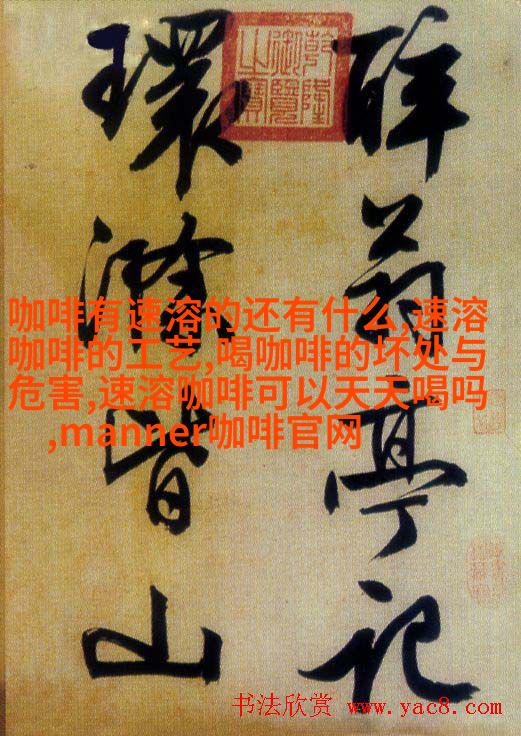 醉翁亭记
环滁皆山
乾隆御覽之寳
咖啡有速溶的还有什么,速溶
咖啡的工艺,喝咖啡的坏处与
危害,速溶咖啡可以天天喝吗
,manner咖啡官网
书法欣赏 www.yac8.com